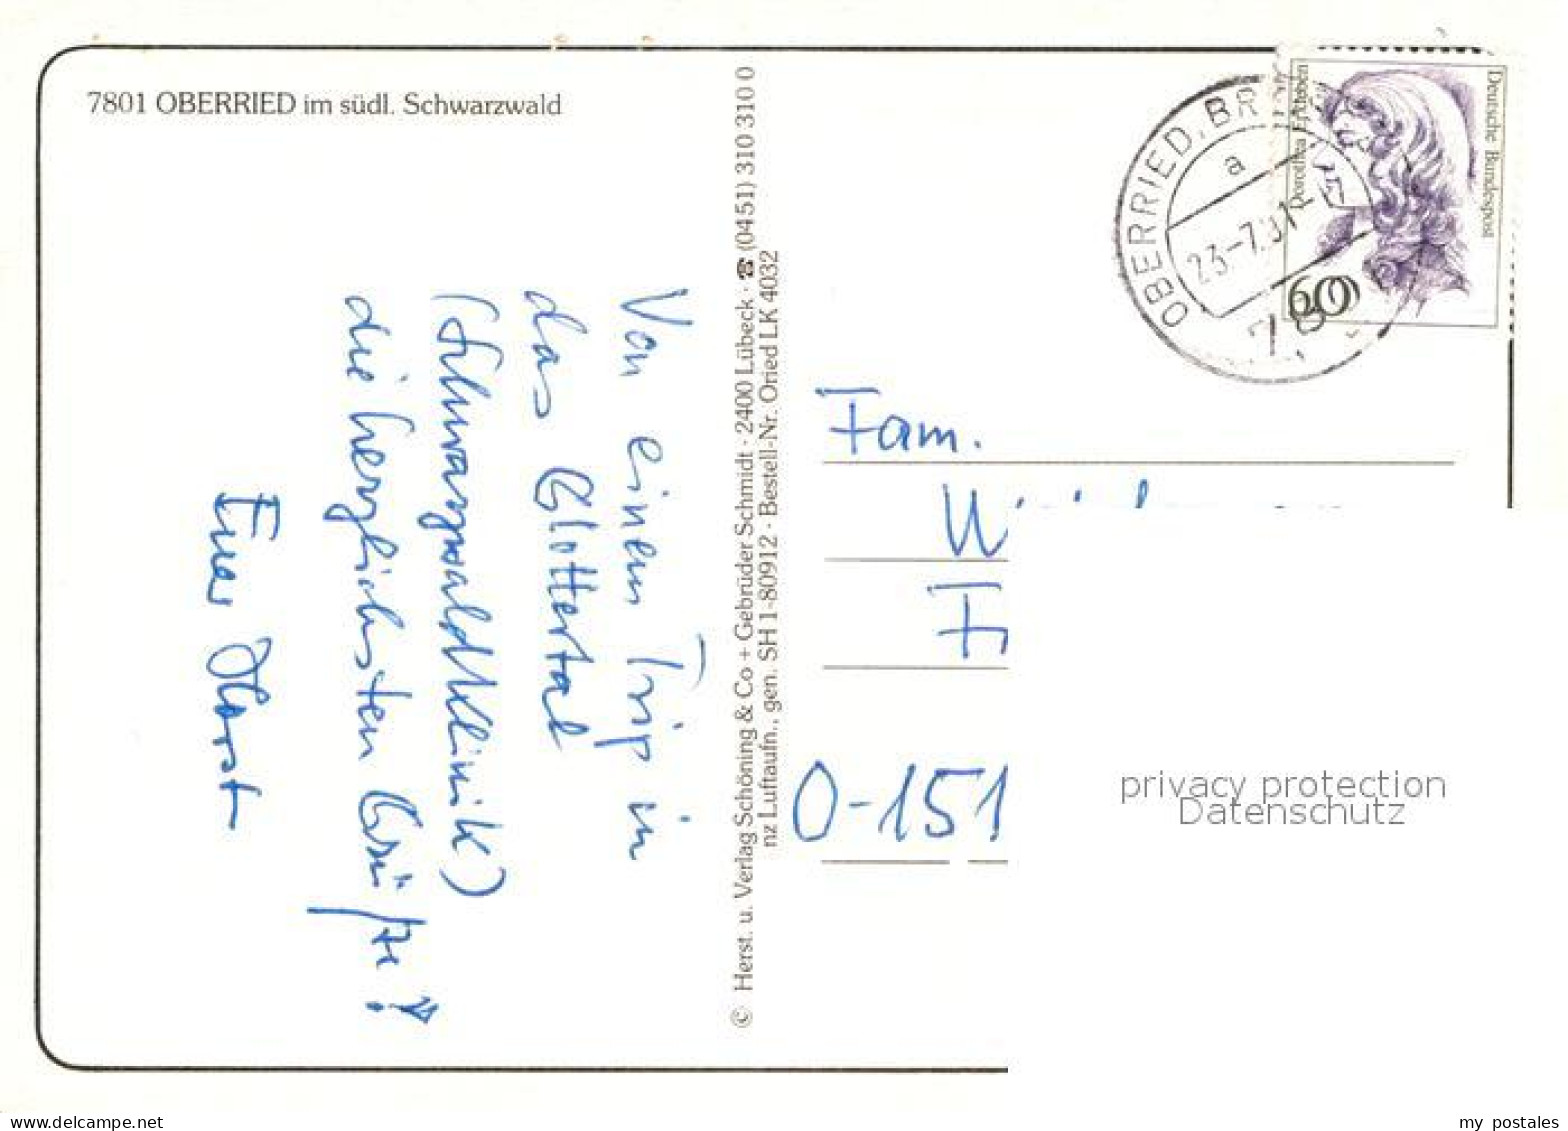 7801 OBERRIED im südl. Schwarzwald
Von einem Trip in
das Glottertal
(Schwarzwaldklinik)
die herzlichsten Grüße!
Euer Horst
© Herst. u. Verlag Schöning & Co + Gebrüder Schmidt · 2400 Lübeck · ☎ (0451) 310 310 0
nz Luftaufn., gen. SH 1-80912 · Bestell-Nr. Oried LK 4032
OBERRIED, BR
a
23.-7.91
780
Deutsche Bundespost
Dorothea Erxleben
60
Fam.
O-151
privacy protection
Datenschutz
www.delcampe.net
my postales